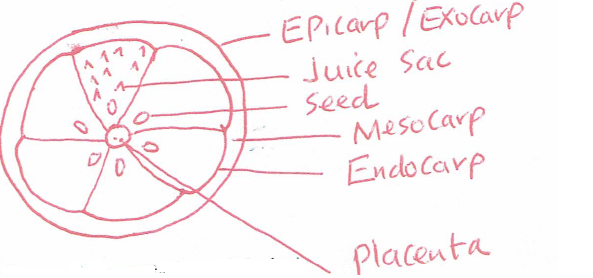 Epicarp / Exocarp
Juice Sac
Seed
Mesocarp
Endocarp
Placenta